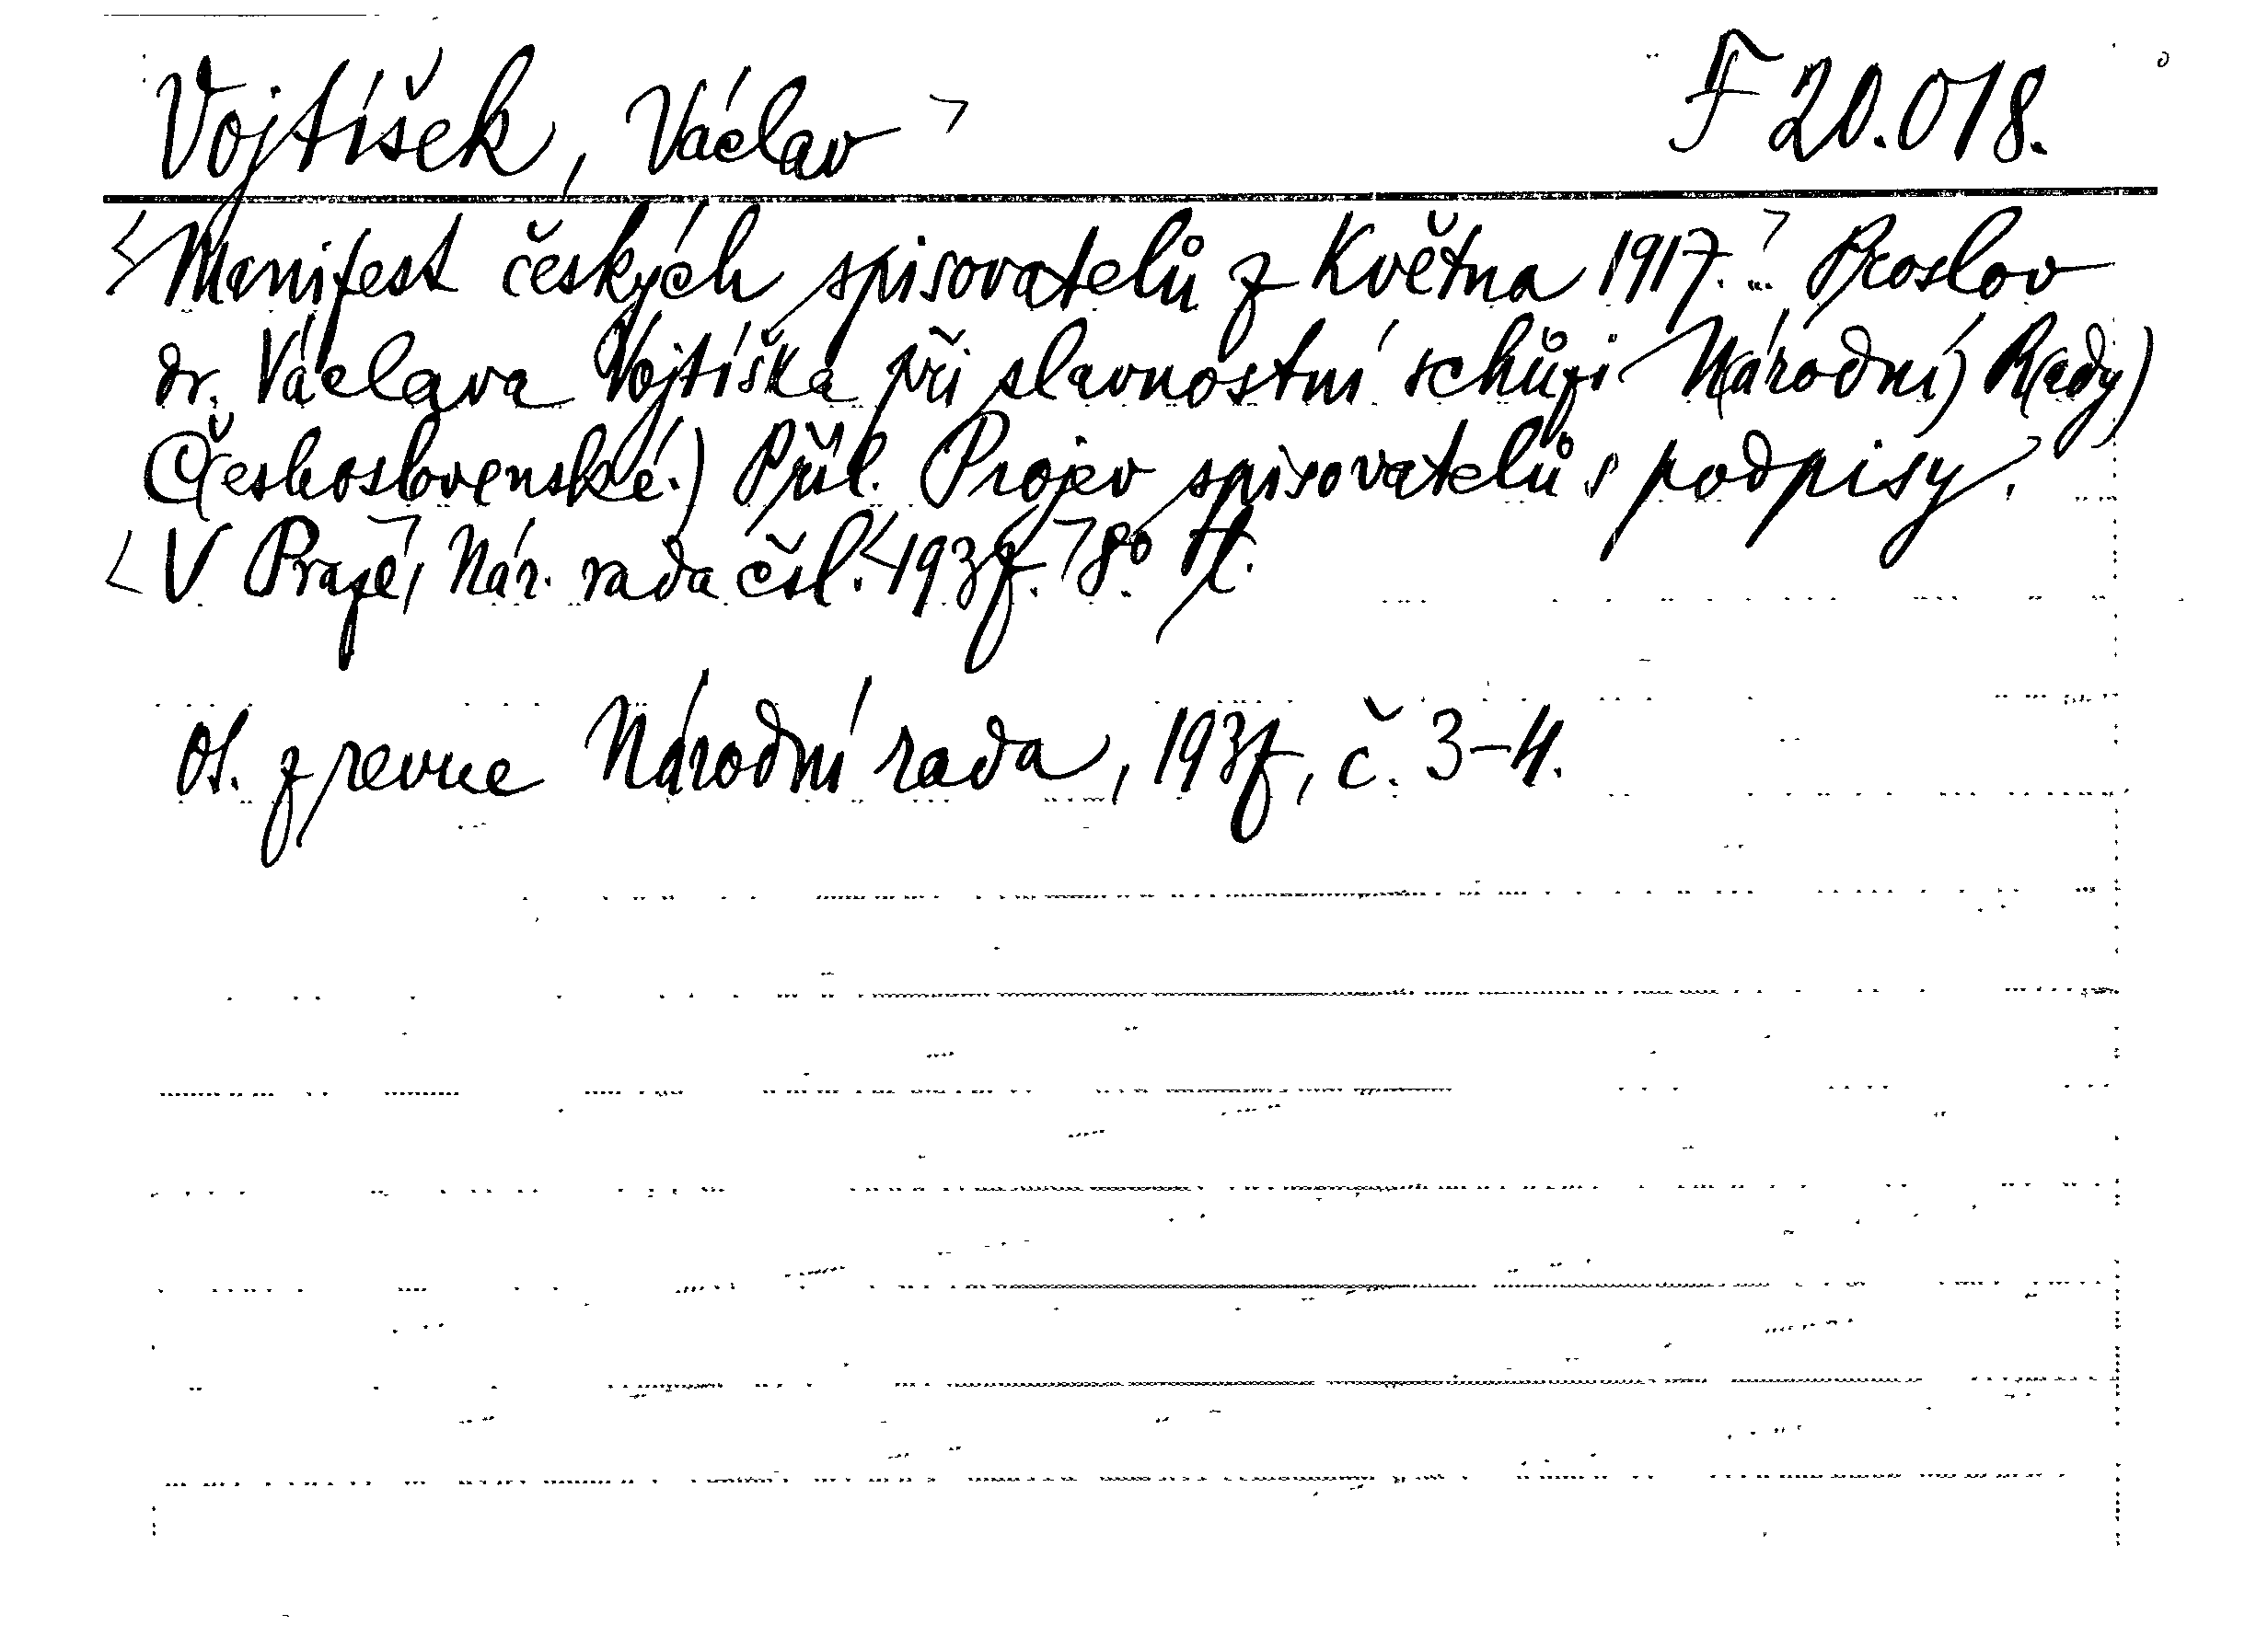 Vojtíšek, Václav ꓶ F 20.018.
<Manifest českých spisovatelů z Května 1917.ꓶ... Proslov
dr. Václava Vojtíška při slavnostní schůzi N(árodní) R(ady)
Č(eskoslovenské.) Příl. Projev spisovatelů s podpisy.ꓶ
<V Prazeꓶ, Nár. rada čsl. <1937.ꓶ 8° Fl.
Ot. z revue Národní rada, 1937, č. 3-4.